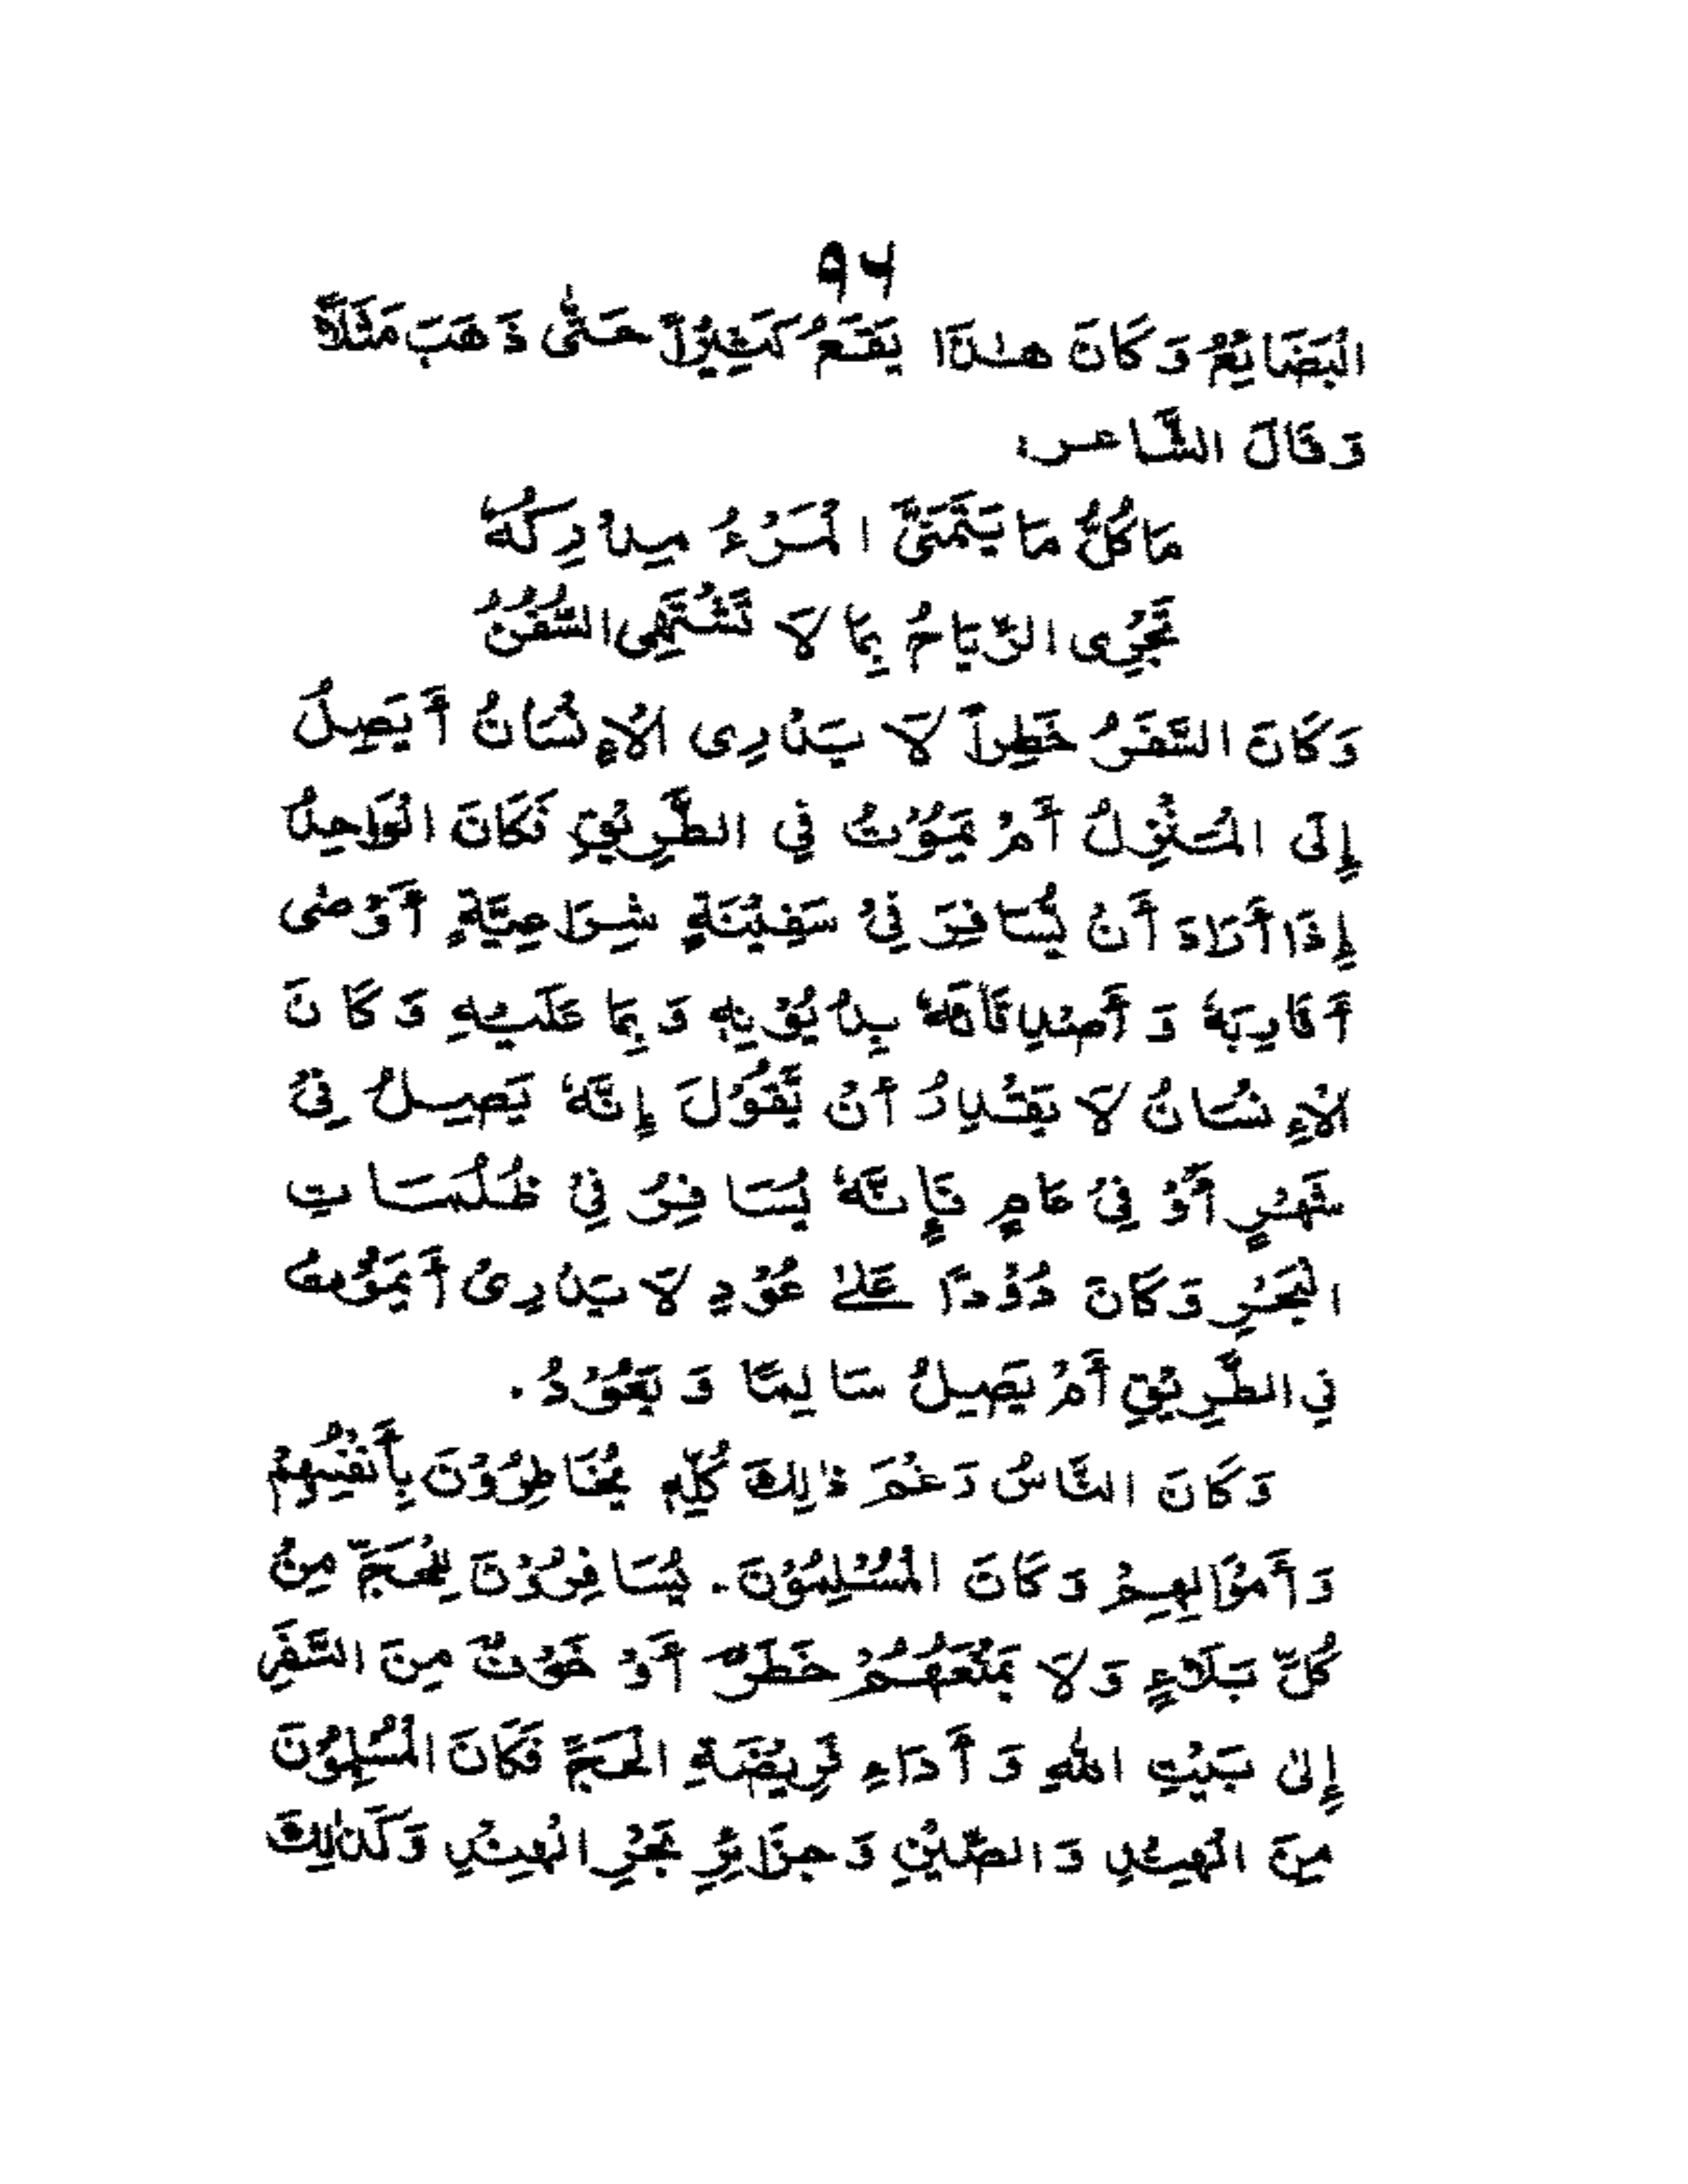 ٩٤
الْبَضَائِعُ وَكَانَ هٰذَا يَقَعُ كَثِيْرًا حَتّٰى ذَهَبَ مَثَلًا
وَقَالَ الشَّاعر:
مَا كُلُّ مَا يَتَمَنَّى الْمَرْءُ يُدْرِكُهٗ
تَجْرِى الرِّيَاحُ بِمَا لَا تَشْتَهِى السُّفُنُ
وَكَانَ السَّفَرُ خَطِرًا لَا يَدْرِى الْاِنْسَانُ أَيَصِلُ
إِلَى الْمَنْزِلِ أَمْ يَمُوْتُ فِي الطَّرِيْقِ فَكَانَ الْوَاحِدُ
إِذَا أَرَادَ أَنْ يُسَافِرَ فِيْ سَفِيْنَةٍ شِرَاعِيَّةٍ أَوْصٰى
أَقَارِبَهٗ وَ أَصْدِقَائَهٗ بِدُيُوْنِهٖ وَ بِمَا عَلَيْهِ وَ كَانَ
الْاِنْسَانُ لَا يَقْدِرُ أَنْ يَّقُوْلَ إِنَّهٗ يَصِلُ فِيْ
شَهْرٍ أَوْ فِيْ عَامٍ فَإِنَّهٗ يُسَافِرُ فِيْ ظُلُمَاتِ
الْبَحْرِ وَ كَانَ دُوْدًا عَلٰى عُوْدٍ لَا يَدْرِىْ أَيَمُوْتُ
فِي الطَّرِيْقِ أَمْ يَصِلُ سَالِمًا وَ يَعُوْدُ.
وَ كَانَ النَّاسُ رَغْمَ ذٰلِكَ كُلِّهٖ يُخَاطِرُوْنَ بِأَنْفُسِهِمْ
وَ أَمْوَالِهِمْ وَ كَانَ الْمُسْلِمُوْنَ. يُسَافِرُوْنَ لِلْحَجِّ مِنْ
كُلِّ بَلَاءٍ وَ لَا يَمْنَعُهُمْ خَطَرٌ أَوْ خَوْفٌ مِنَ السَّفَرِ
إِلٰى بَيْتِ اللّٰهِ وَ أَدَاءِ فَرِيْضَةِ الْحَجِّ فَكَانَ الْمُسْلِمُوْنَ
مِنَ الْهِنْدِ وَ الصِّيْنِ وَ جَزَائِرِ بَحْرِ الْهِنْدِ وَ كَذٰلِكَ